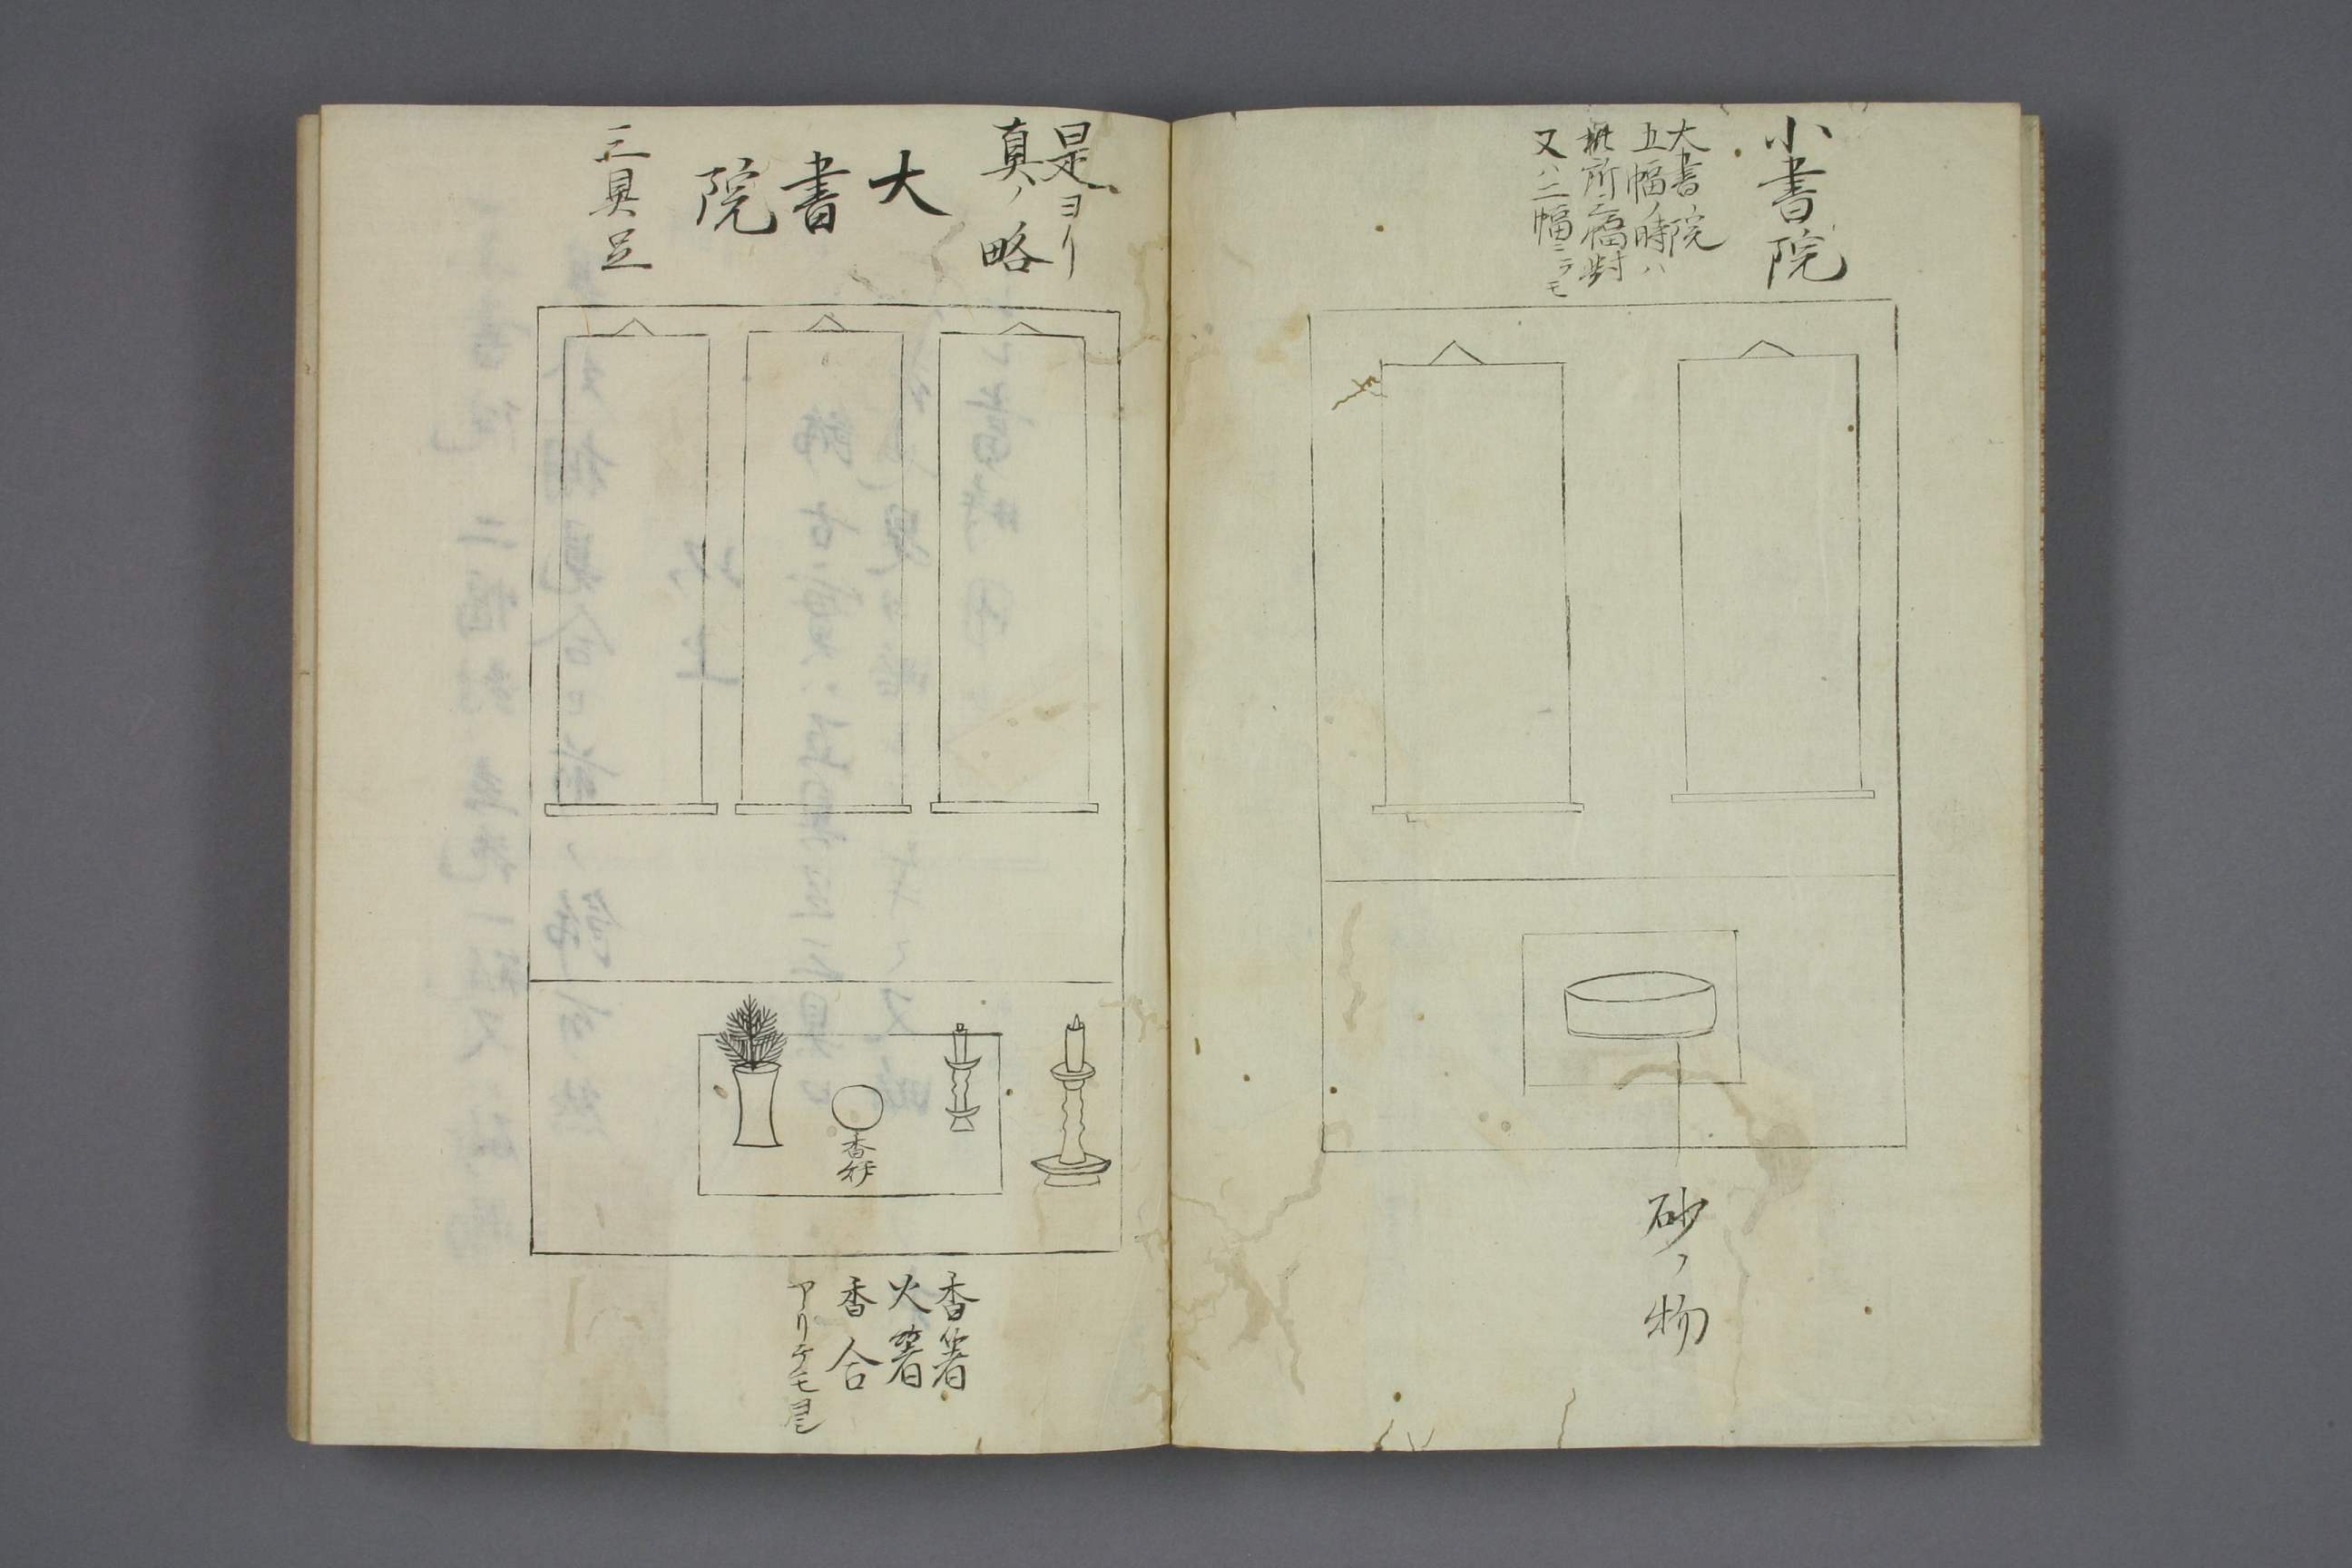 小書院
大書院
五幅ノ時ハ
此所三幅対
又ハ二幅ニテモ
砂ノ物
是ヨリ
真ノ略
大書院
三具足
香炉
香箸
火箸
香合
アリテモ